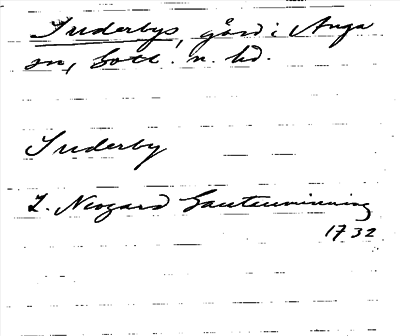 Suderbys, gård i Anga
sn, Gotl. n. hd.
Suderby
L. Neogard Gauteminning
1732